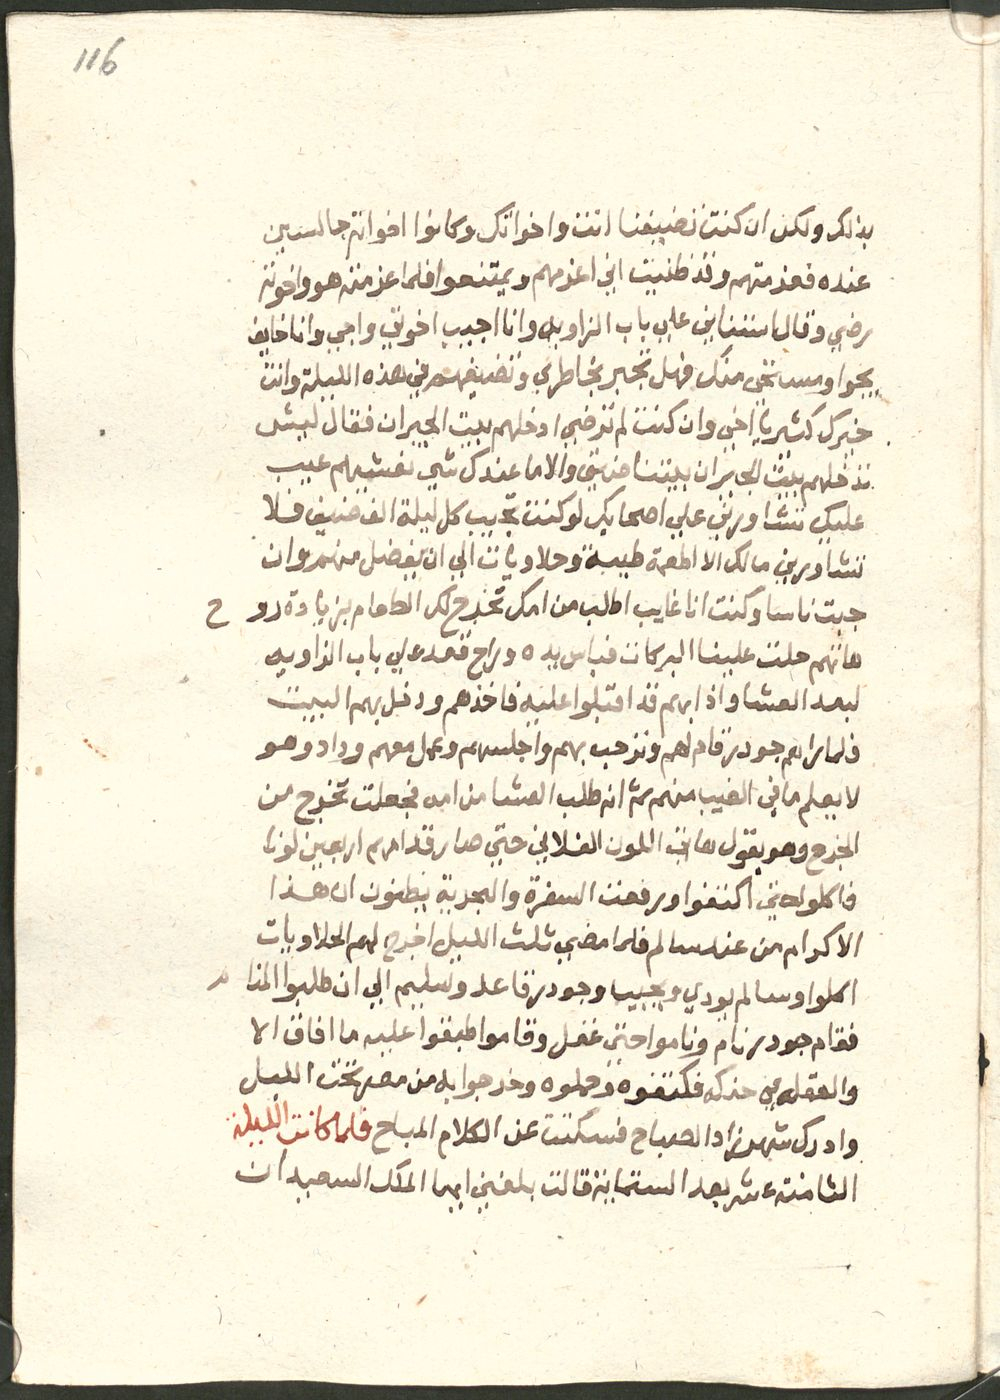 116
بذلك ولكن ان كنت تضيفنا انت واخواتك وكانوا اخوانه جالسين
عنده فعزمتهم وقد ظنيت اني اعزمهم ويمتنعوا فلما عزمته هو واخوته
رضي وقال استناني علي باب الزاويه وانا اجيب اخوتي واجي وانا خايف
يجوا ومستحي منك فهل تجبر بخاطري وتضيفهم في هذه الليلة وانت
خيرك كثير يا اخي وان كنت لم ترضي ادخلهم بيت الجيران فقال ليش
تدخلهم بيت الجيران بيتنا ضيق والا ما عندك شي نعشيهم عيب
عليك تشاورني علي اصحابك لو كنت تجيب كل ليلة الف ضيف فلا
تشاورني مالك الا اطعمة طيبة وحلاويات الي ان يفضل منهم وان
جبت ناسا وكنت انا غايب اطلب من امك تخرج لك الطعام بزيادة روح
هاتهم حلت علينا البركات فباس يده وراح قعد علي باب الزاويه
لبعد العشا واذا بهم قد اقبلوا عليه فاخذهم ودخل بهم البيت
فلما راهم جودر قام لهم وترحب بهم واجلسهم وعمل معهم وداد وهو
لا يعلم ما في الغيب منهم ثم انه طلب العشا من امه فجعلت تخرج من
الخرج وهو يقول هاتي اللون الفلاني حتي صار قدامهم اربعين لونا
فاكلوا حتي اكتفوا ورفعت السفرة والبحرية يظنون ان هذا
الاكرام من عند سالم فلما مضي ثلث الليل اخرج لهم الحلاويات
اكلوا وسالم يودي ويجيب وجودر قاعد وسليم الي ان طلبوا المنام
فقام جودر نام وناموا حتي غفل وقاموا طبقوا عليه ما افاق الا
والعقله في حنكه فكتفوه وحملوه وخرجوا به من مصر تحت الليل
وادرك شهرزاد الصباح فسكتت عن الكلام المباح فلما كانت الليلة
الثامنة عشر بعد الستماية قالت بلغني ايها الملك السعيد ان